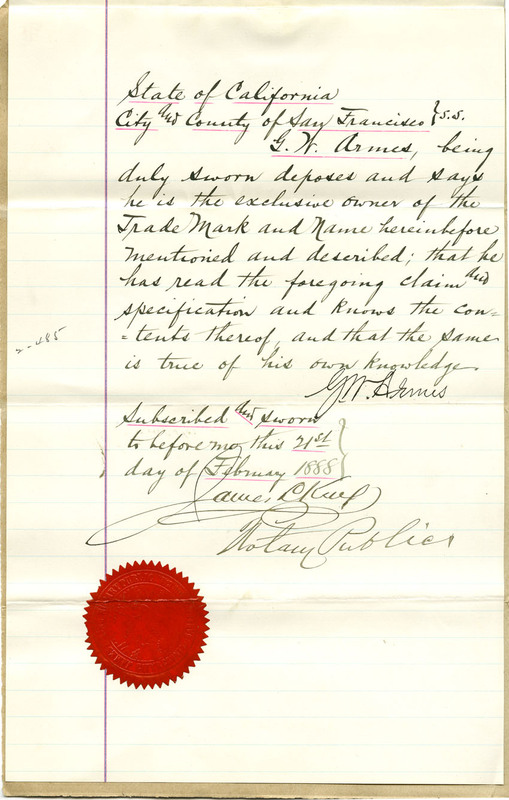 State of California
City and County of San Francisco } s.s.
G. W. Armes, being
duly sworn deposes and says
he is the exclusive owner of the
Trade Mark and Name hereinbefore
mentioned and described; that he
has read the foregoing claim and
specification and knows the con=
=tents thereof, and that the same
is true of his own knowledge.
G. W. Armes
Subscribed and sworn
to before me this 21st
day of February 1888
James L King
Notary Public
2-485